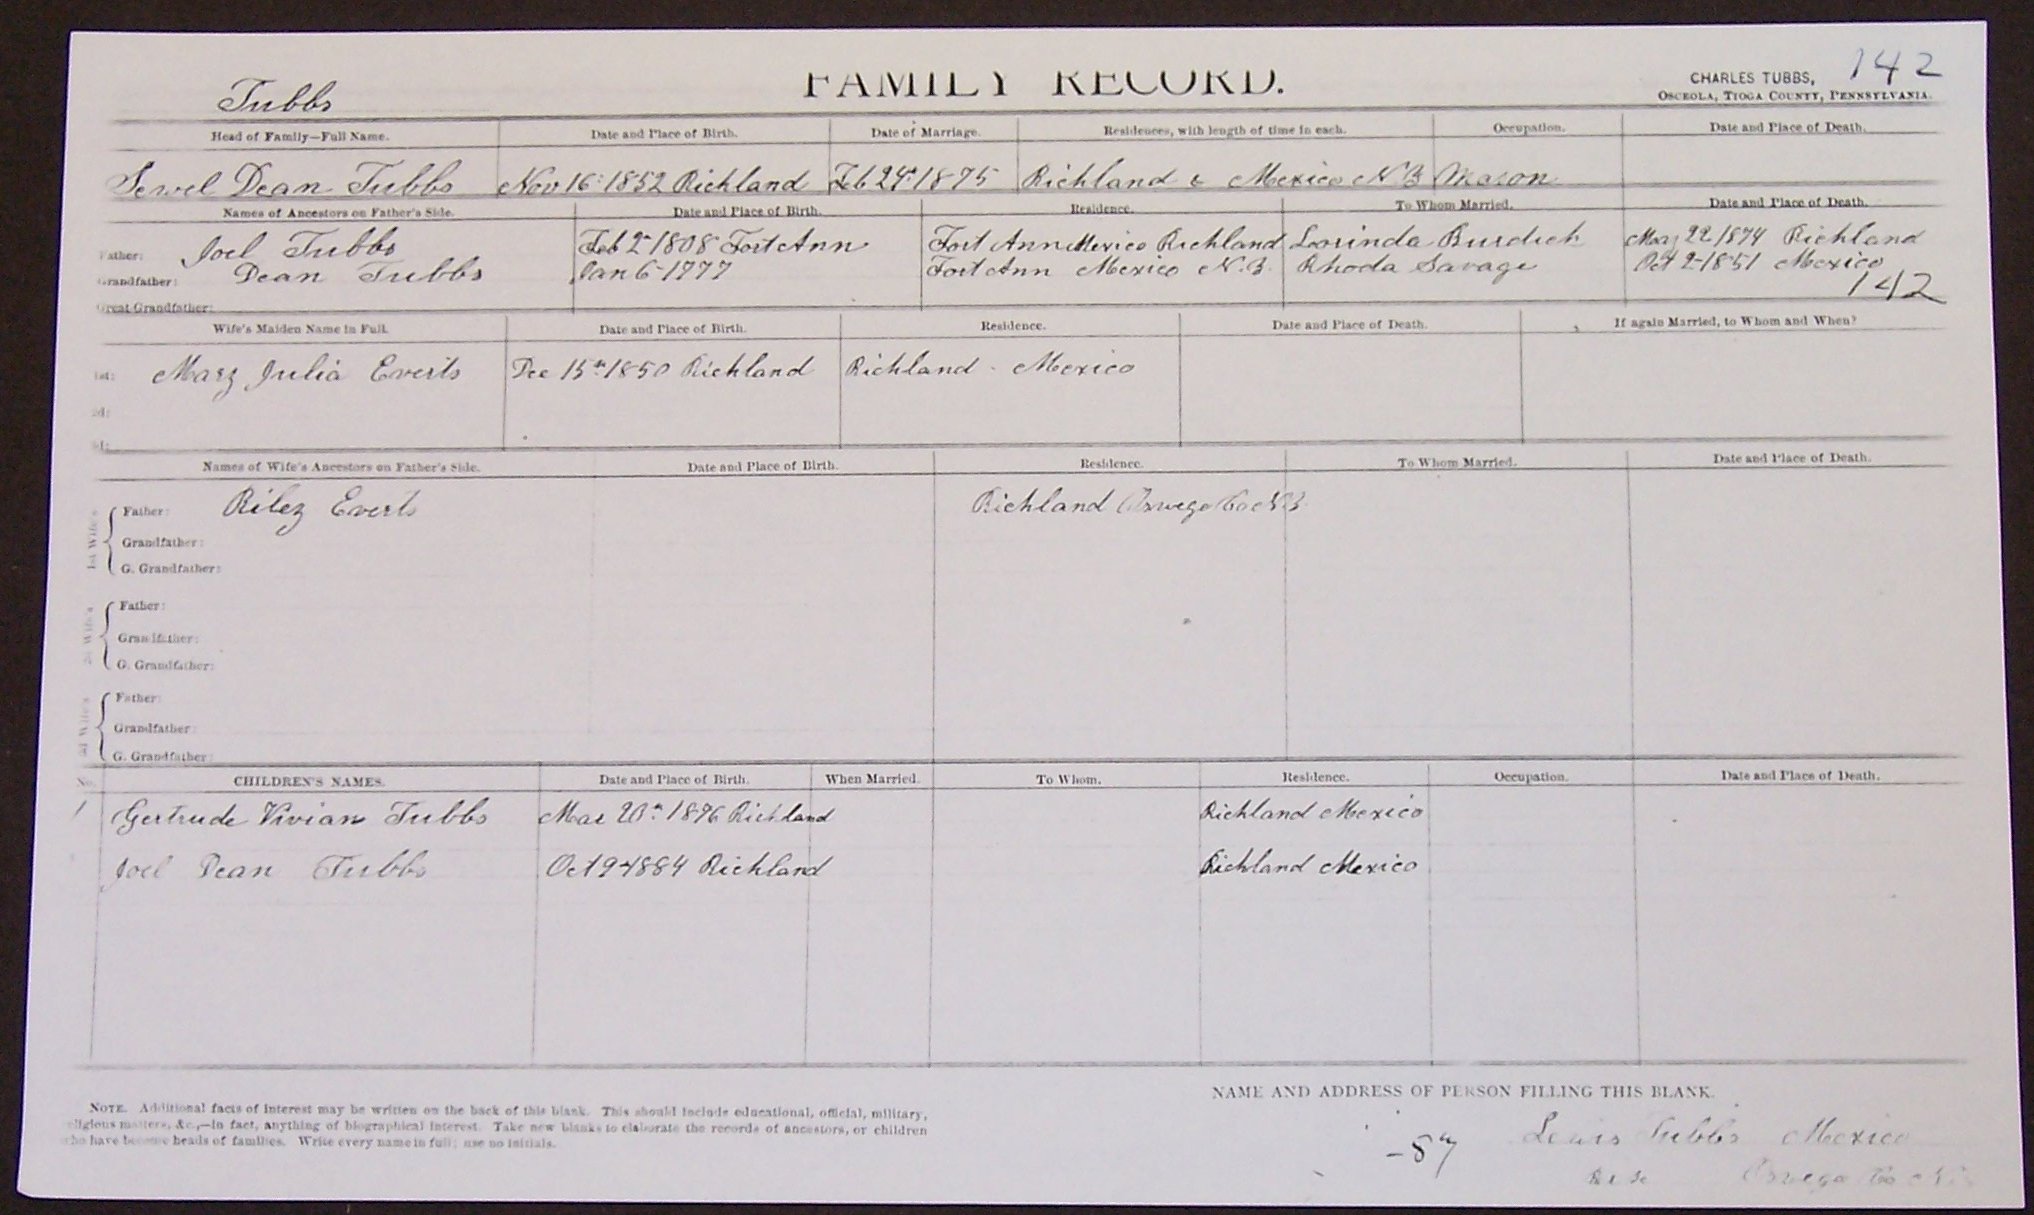 142
Tubbs FAMILY RECORD. CHARLES TUBBS,
OSCEOLA, TIOGA COUNTY, PENNSYLVANIA.
Head of Family—Full Name. Date and Place of Birth. Date of Marriage. Residences, with length of time in each. Occupation. Date and Place of Death.
Sewel Dean Tubbs Nov 16 1852 Richland Feb 24 1875 Richland & Mexico N.Y Mason
Names of Ancestors on Father's Side. Date and Place of Birth. Residence. To Whom Married. Date and Place of Death.
Father: Joel Tubbs Feb 2 1808 Fort Ann Fort Ann Mexico Richland Lorinda Burdick May 22 1874 Richland
Grandfather: Dean Tubbs Jan 6-1777 Fort Ann Mexico N.Y. Rhoda Savage Oct 2-1851 Mexico
142
Great Grandfather:
Wife's Maiden Name in Full. Date and Place of Birth. Residence. Date and Place of Death. If again Married, to Whom and When?
1st: Mary Julia Everts Dec 15th 1850 Richland Richland - Mexico
2d:
3d:
Names of Wife's Ancestors on Father's Side. Date and Place of Birth. Residence. To Whom Married. Date and Place of Death.
1st Wife's
Father: Riley Everts Richland Oswego Co N.Y
Grandfather:
G. Grandfather:
2d Wife's
Father:
Grandfather:
G. Grandfather:
3d Wife's
Father:
Grandfather:
G. Grandfather:
No. CHILDREN'S NAMES. Date and Place of Birth. When Married. To Whom. Residence. Occupation. Date and Place of Death.
1 Gertrude Vivian Tubbs Mar 20th 1876 Richland Richland Mexico
Joel Dean Tubbs Oct 9-1884 Richland Richland Mexico
NAME AND ADDRESS OF PERSON FILLING THIS BLANK.
NOTE. Additional facts of interest may be written on the back of this blank. This should include educational, official, military,
religious matters, &c.,—in fact, anything of biographical interest. Take new blanks to elaborate the records of ancestors, or children
who have become heads of families. Write every name in full; use no initials.
Lewis Tubbs Mexico
Oswego Co N.Y